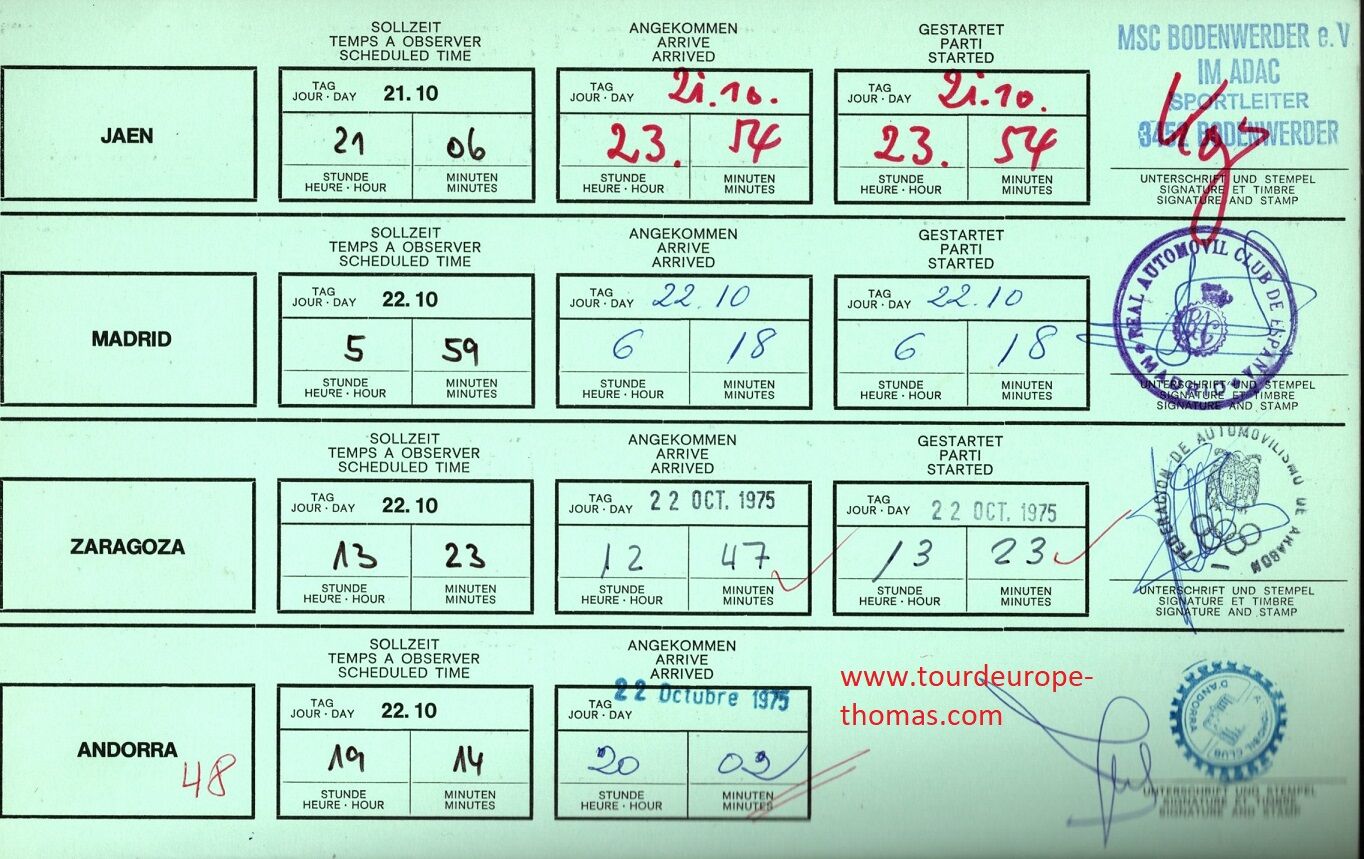 SOLLZEIT
TEMPS A OBSERVER
SCHEDULED TIME
ANGEKOMMEN
ARRIVE
ARRIVED
GESTARTET
PARTI
STARTED
MSC BODENWERDER e.V
IM ADAC
SPORTLEITER
3452 BODENWERDER
JAEN
TAG
JOUR · DAY 21.10
21 06
STUNDE MINUTEN
HEURE · HOUR MINUTES
TAG
JOUR · DAY 21.10.
23. 54
STUNDE MINUTEN
HEURE · HOUR MINUTES
TAG
JOUR · DAY 21.10.
23. 54
STUNDE MINUTEN
HEURE · HOUR MINUTES
UNTERSCHRIFT UND STEMPEL
SIGNATURE ET TIMBRE
SIGNATURE AND STAMP
SOLLZEIT
TEMPS A OBSERVER
SCHEDULED TIME
ANGEKOMMEN
ARRIVE
ARRIVED
GESTARTET
PARTI
STARTED
REAL AUTOMOVIL CLUB DE ESPAÑA
MADRID
MADRID
TAG
JOUR · DAY 22.10
5 59
STUNDE MINUTEN
HEURE · HOUR MINUTES
TAG
JOUR · DAY 22.10
6 18
STUNDE MINUTEN
HEURE · HOUR MINUTES
TAG
JOUR · DAY 22.10
6 18
STUNDE MINUTEN
HEURE · HOUR MINUTES
UNTERSCHRIFT UND STEMPEL
SIGNATURE ET TIMBRE
SIGNATURE AND STAMP
SOLLZEIT
TEMPS A OBSERVER
SCHEDULED TIME
ANGEKOMMEN
ARRIVE
ARRIVED
GESTARTET
PARTI
STARTED
FEDERACION DE AUTOMOVILISMO DE ARAGON
ZARAGOZA
TAG
JOUR · DAY 22.10
13 23
STUNDE MINUTEN
HEURE · HOUR MINUTES
TAG
JOUR · DAY 22 OCT. 1975
12 47
STUNDE MINUTEN
HEURE · HOUR MINUTES
TAG
JOUR · DAY 22 OCT. 1975
13 23
STUNDE MINUTEN
HEURE · HOUR MINUTES
UNTERSCHRIFT UND STEMPEL
SIGNATURE ET TIMBRE
SIGNATURE AND STAMP
SOLLZEIT
TEMPS A OBSERVER
SCHEDULED TIME
ANGEKOMMEN
ARRIVE
ARRIVED
www.tourdeurope-
thomas.com
CLUB D'ANDORRA
ANDORRA
48
TAG
JOUR · DAY 22.10
19 14
STUNDE MINUTEN
HEURE · HOUR MINUTES
TAG
JOUR · DAY 22 Octubre 1975
20 02
STUNDE MINUTEN
HEURE · HOUR MINUTES
UNTERSCHRIFT UND STEMPEL
SIGNATURE ET TIMBRE
SIGNATURE AND STAMP